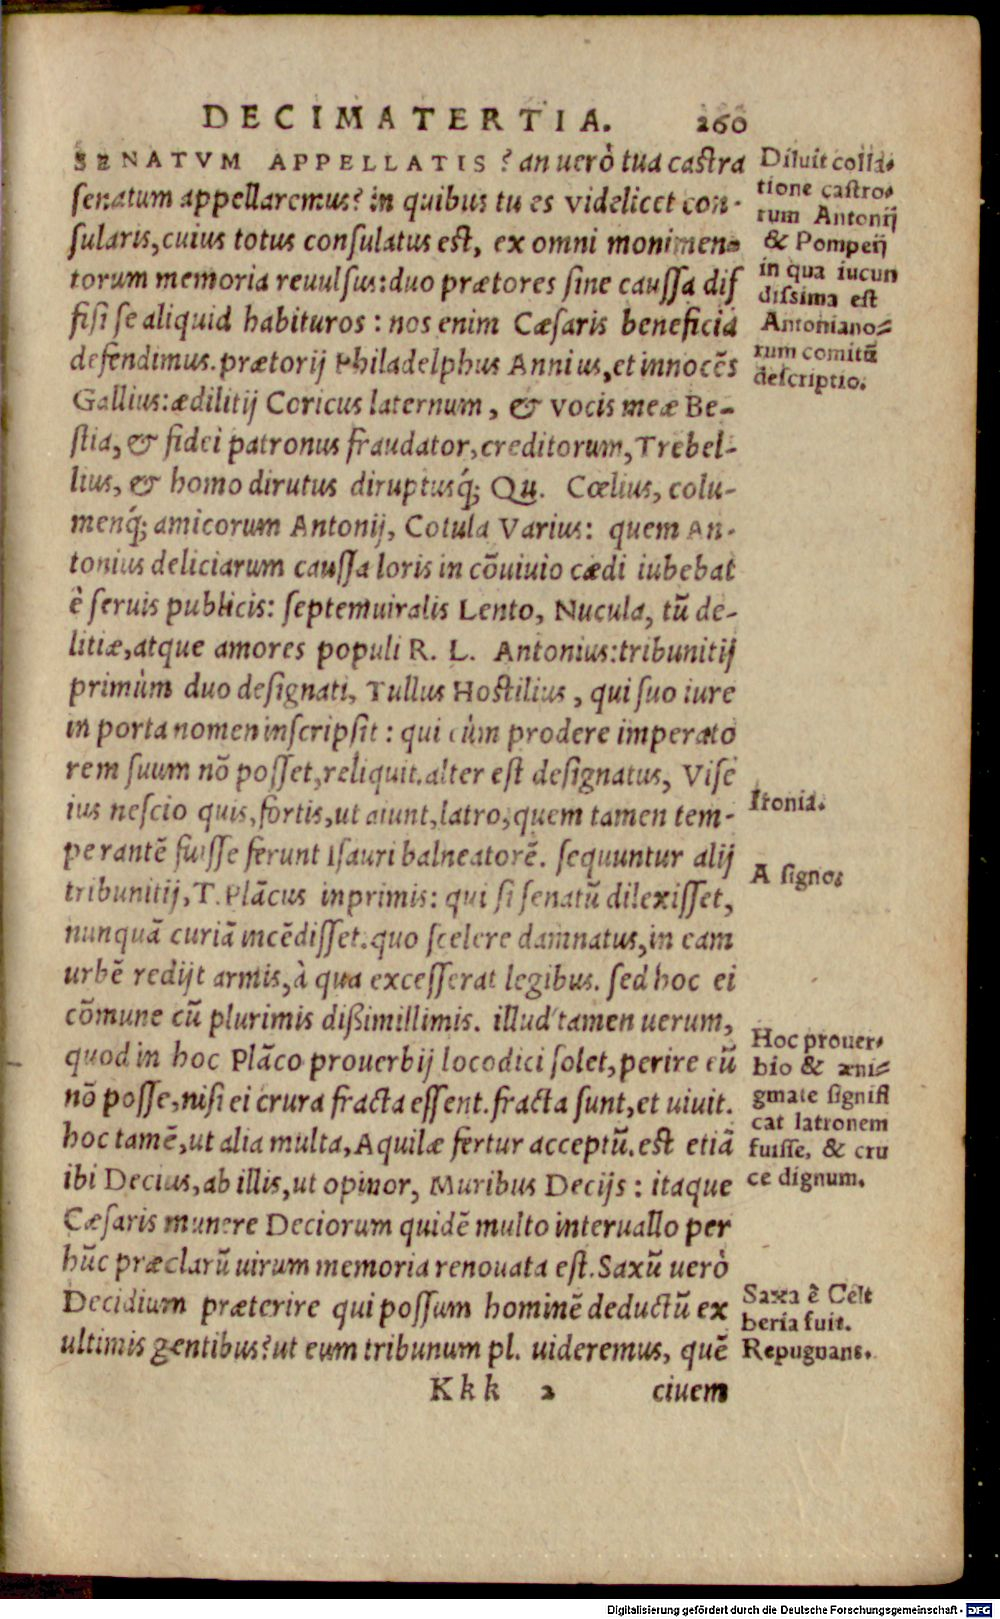 DECIMATERTIA. 260
SENATVM APPELLATIS? an uerò tua castra
senatum appellaremus? in quibus tu es videlicet con-
sularis, cuius totus consulatus est, ex omni monimen-
torum memoria reuulsus: duo prætores sine caussa dif
fisi se aliquid habituros: nos enim Cæsaris beneficia
defendimus. prætorij Philadelphus Annius, et innocēs
Gallius: ædilitij Coricus laternum, & vocis meæ Be-
stia, & fidei patronus fraudator, creditorum, Trebel-
lius, & homo dirutus diruptusq́; Qu. Cœlius, colu-
menq́; amicorum Antonij, Cotula Varius: quem An-
tonius deliciarum caussa loris in cōuiuio cædi iubebat
è seruis publicis: septemuiralis Lento, Nucula, tū de-
litiæ, atque amores populi R. L. Antonius: tribunitij
primùm duo designati, Tullus Hostilius, qui suo iure
in porta nomen inscripsit: qui cùm prodere imperato
rem suum nō posset, reliquit. alter est designatus, Vise
ius nescio quis, fortis, ut aiunt, latro, quem tamen tem-
perantē fuisse ferunt Isauri balneatorē. sequuntur alij
tribunitij, T. Plācus inprimis: qui si senatū dilexisset,
nunquā curiā incēdisset. quo scelere damnatus, in eam
urbē redijt armis, à qua excesserat legibus. sed hoc ei
cōmune cū plurimis dißimillimis. illud tamen uerum,
quod in hoc Plāco prouerbij loco dici solet, perire eū
nō posse, nisi ei crura fracta essent. fracta sunt, et uiuit.
hoc tamē, ut alia multa, Aquilæ fertur acceptū. est etiā
ibi Decius, ab illis, ut opinor, Muribus Decijs: itaque
Cæsaris munere Deciorum quidē multo interuallo per
hūc præclarū uirum memoria renouata est. Saxū uerò
Decidium præterire qui possum hominē deductū ex
ultimis gentibus? ut eum tribunum pl. uideremus, quē
Kkk 2 ciuem
Diluit colla-
tione castro-
rum Antonij
& Pompeij
in qua iucun
dissima est
Antoniano-
rum comitū
descriptio.
Ironia.
A signo:
Hoc prouer-
bio & æni-
gmate signifi
cat latronem
fuisse, & cru
ce dignum.
Saxa è Celt
beria fuit.
Repugnans.
Digitalisierung gefördert durch die Deutsche Forschungsgemeinschaft - DFG